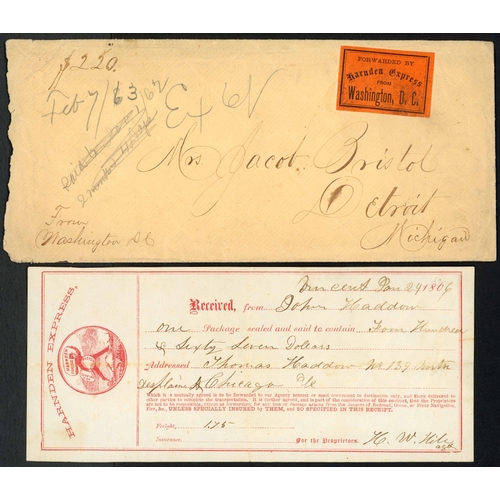 $220.
Feb 7/63
FORWARDED BY
Harnden Express
FROM
Washington, D. C.
Mrs Jacob Bristol
Detroit
Michigan
From
Washington DC
HARNDEN EXPRESS,
Vincent Jan 29 1806
Received, from John Haddow
one Package sealed and said to contain Four Hundred
& Sixty Seven Dollars
Addressed Thomas Haddow No 139 North
Chicago Ill
which it is mutually agreed is to be forwarded to our Agency nearest or most convenient to destination only, and there delivered to
other parties to complete the transportation. It is further agreed, and is part of the consideration of this contract, that the Proprietors
are not to be responsible, except as forwarders, for any loss or damage
Fire, &c., UNLESS SPECIALLY INSURED by THEM, and SO SPECIFIED IN THIS RECEIPT.
Freight, 175
Insurance. For the Proprietors. H. W.
agt